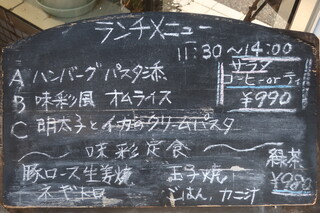 ランチメニュー
11:30～14:00
A ハンバーグ パスタ添
B 味彩風 オムライス
C 明太子とイカのクリームパスタ
サラダ
コーヒーorティ
¥990
～味彩定食～
豚ロース生姜焼 玉子焼 緑茶
ネギトロ ごはん、カニ汁 ¥980